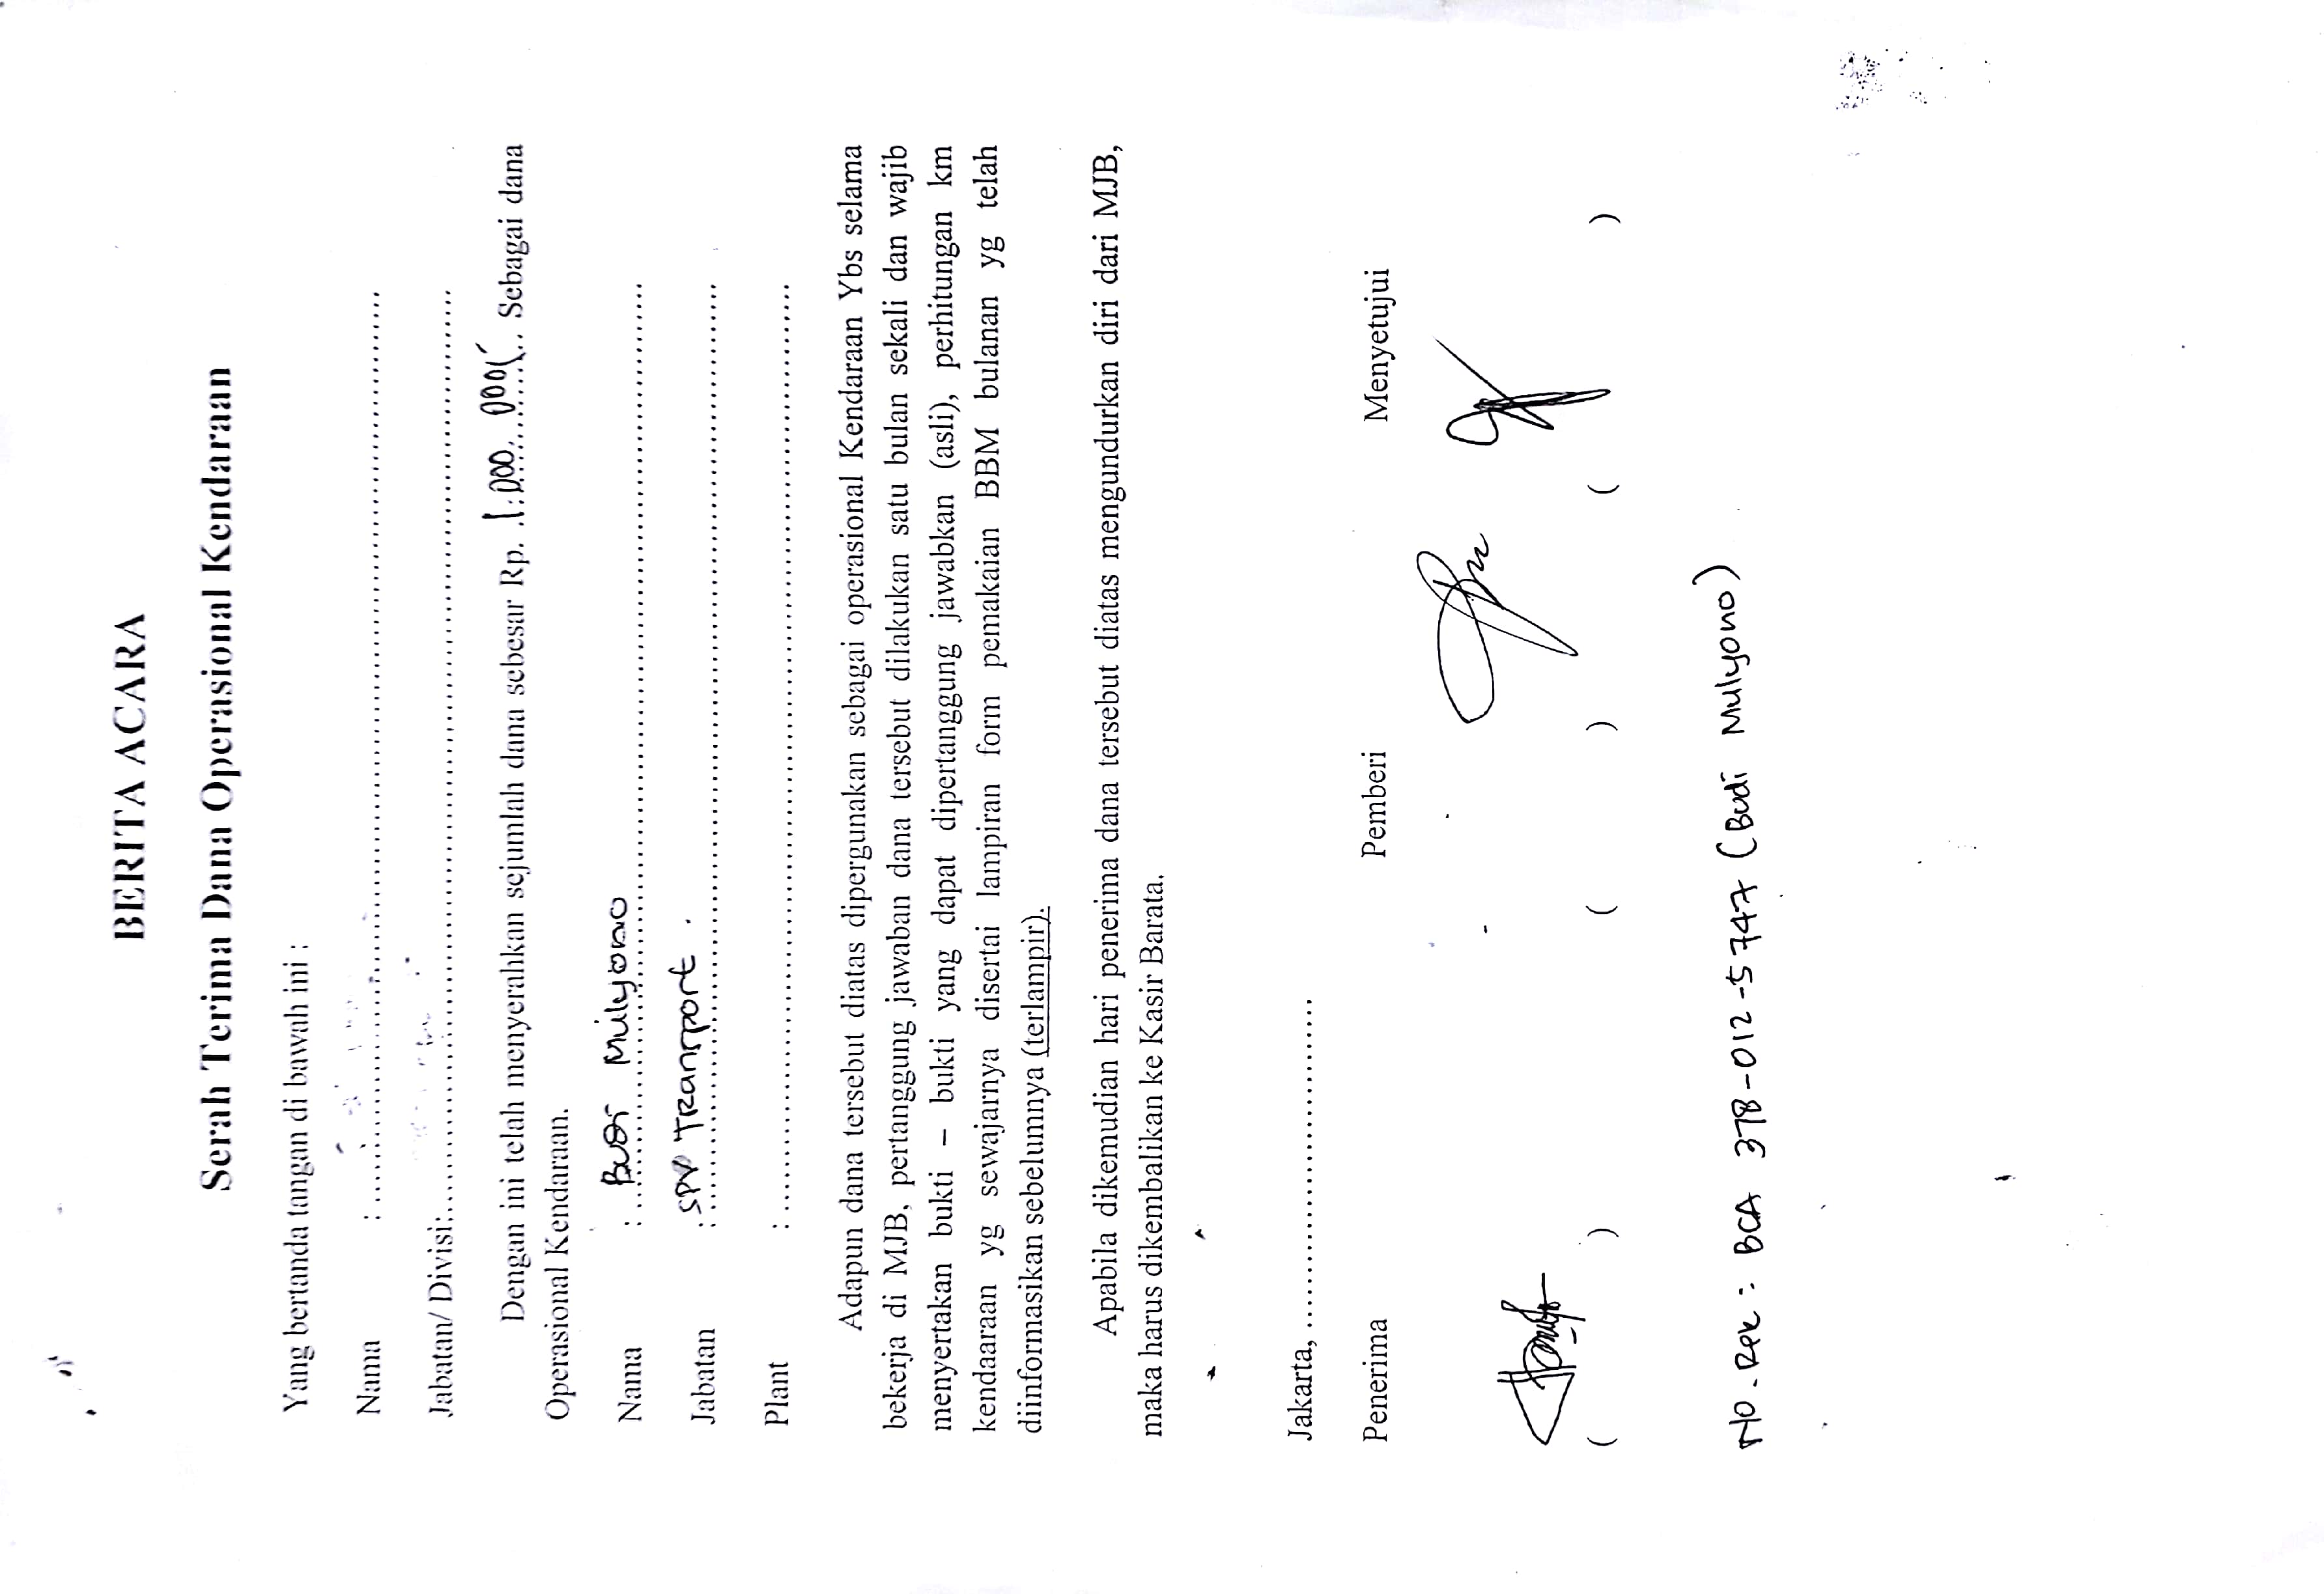 BERITA ACARA
Serah Terima Dana Operasional Kendaraan
Yang bertanda tangan di bawah ini :
Nama : ........................................................................
Jabatan/ Divisi:........................................................................
Dengan ini telah menyerahkan sejumlah dana sebesar Rp. 1.000.000(.. Sebagai dana
Operasional Kendaraan.
Nama : Budi Mulyono
Jabatan : SPV Transport.
Plant : ........................................................................
Adapun dana tersebut diatas dipergunakan sebagai operasional Kendaraan Ybs selama
bekerja di MJB, pertanggung jawaban dana tersebut dilakukan satu bulan sekali dan wajib
menyertakan bukti – bukti yang dapat dipertanggung jawabkan (asli), perhitungan km
kendaaraan yg sewajarnya disertai lampiran form pemakaian BBM bulanan yg telah
diinformasikan sebelumnya (terlampir).
Apabila dikemudian hari penerima dana tersebut diatas mengundurkan diri dari MJB,
maka harus dikembalikan ke Kasir Barata.
Jakarta, ........................................
Penerima Pemberi Menyetujui
( ) ( ) ( )
No. Rek : BCA 378-012-5747 (Budi Mulyono)